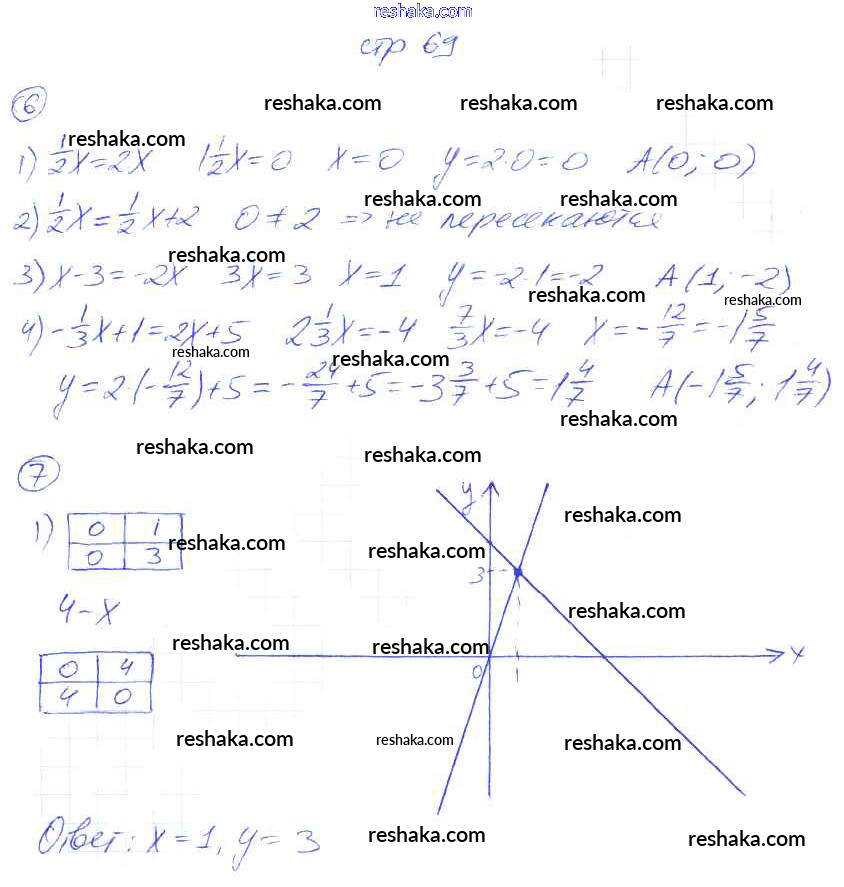 reshaka.com
стр 69
6
reshaka.com reshaka.com reshaka.com
reshaka.com
1) 1/2x=2x 1 1/2x=0 x=0 y=2·0=0 A(0; 0)
reshaka.com reshaka.com
2) 1/2x=1/2x+2 0≠2 => не пересекаются
reshaka.com
3) x-3=-2x 3x=3 x=1 y=-2·1=-2 A(1; -2)
reshaka.com reshaka.com
4) -1/3x+1=2x+5 2 1/3x=-4 7/3x=-4 x=-12/7=-1 5/7
reshaka.com reshaka.com
y=2·(-12/7)+5=-24/7+5=-3 3/7+5=1 4/7 A(-1 5/7; 1 4/7)
reshaka.com
reshaka.com reshaka.com
7
y
reshaka.com
1) 0 1
0 3
reshaka.com reshaka.com
3
4-x
reshaka.com
reshaka.com reshaka.com
x
0 4
4 0
0 1
reshaka.com reshaka.com reshaka.com
Ответ: x=1, y=3
reshaka.com reshaka.com